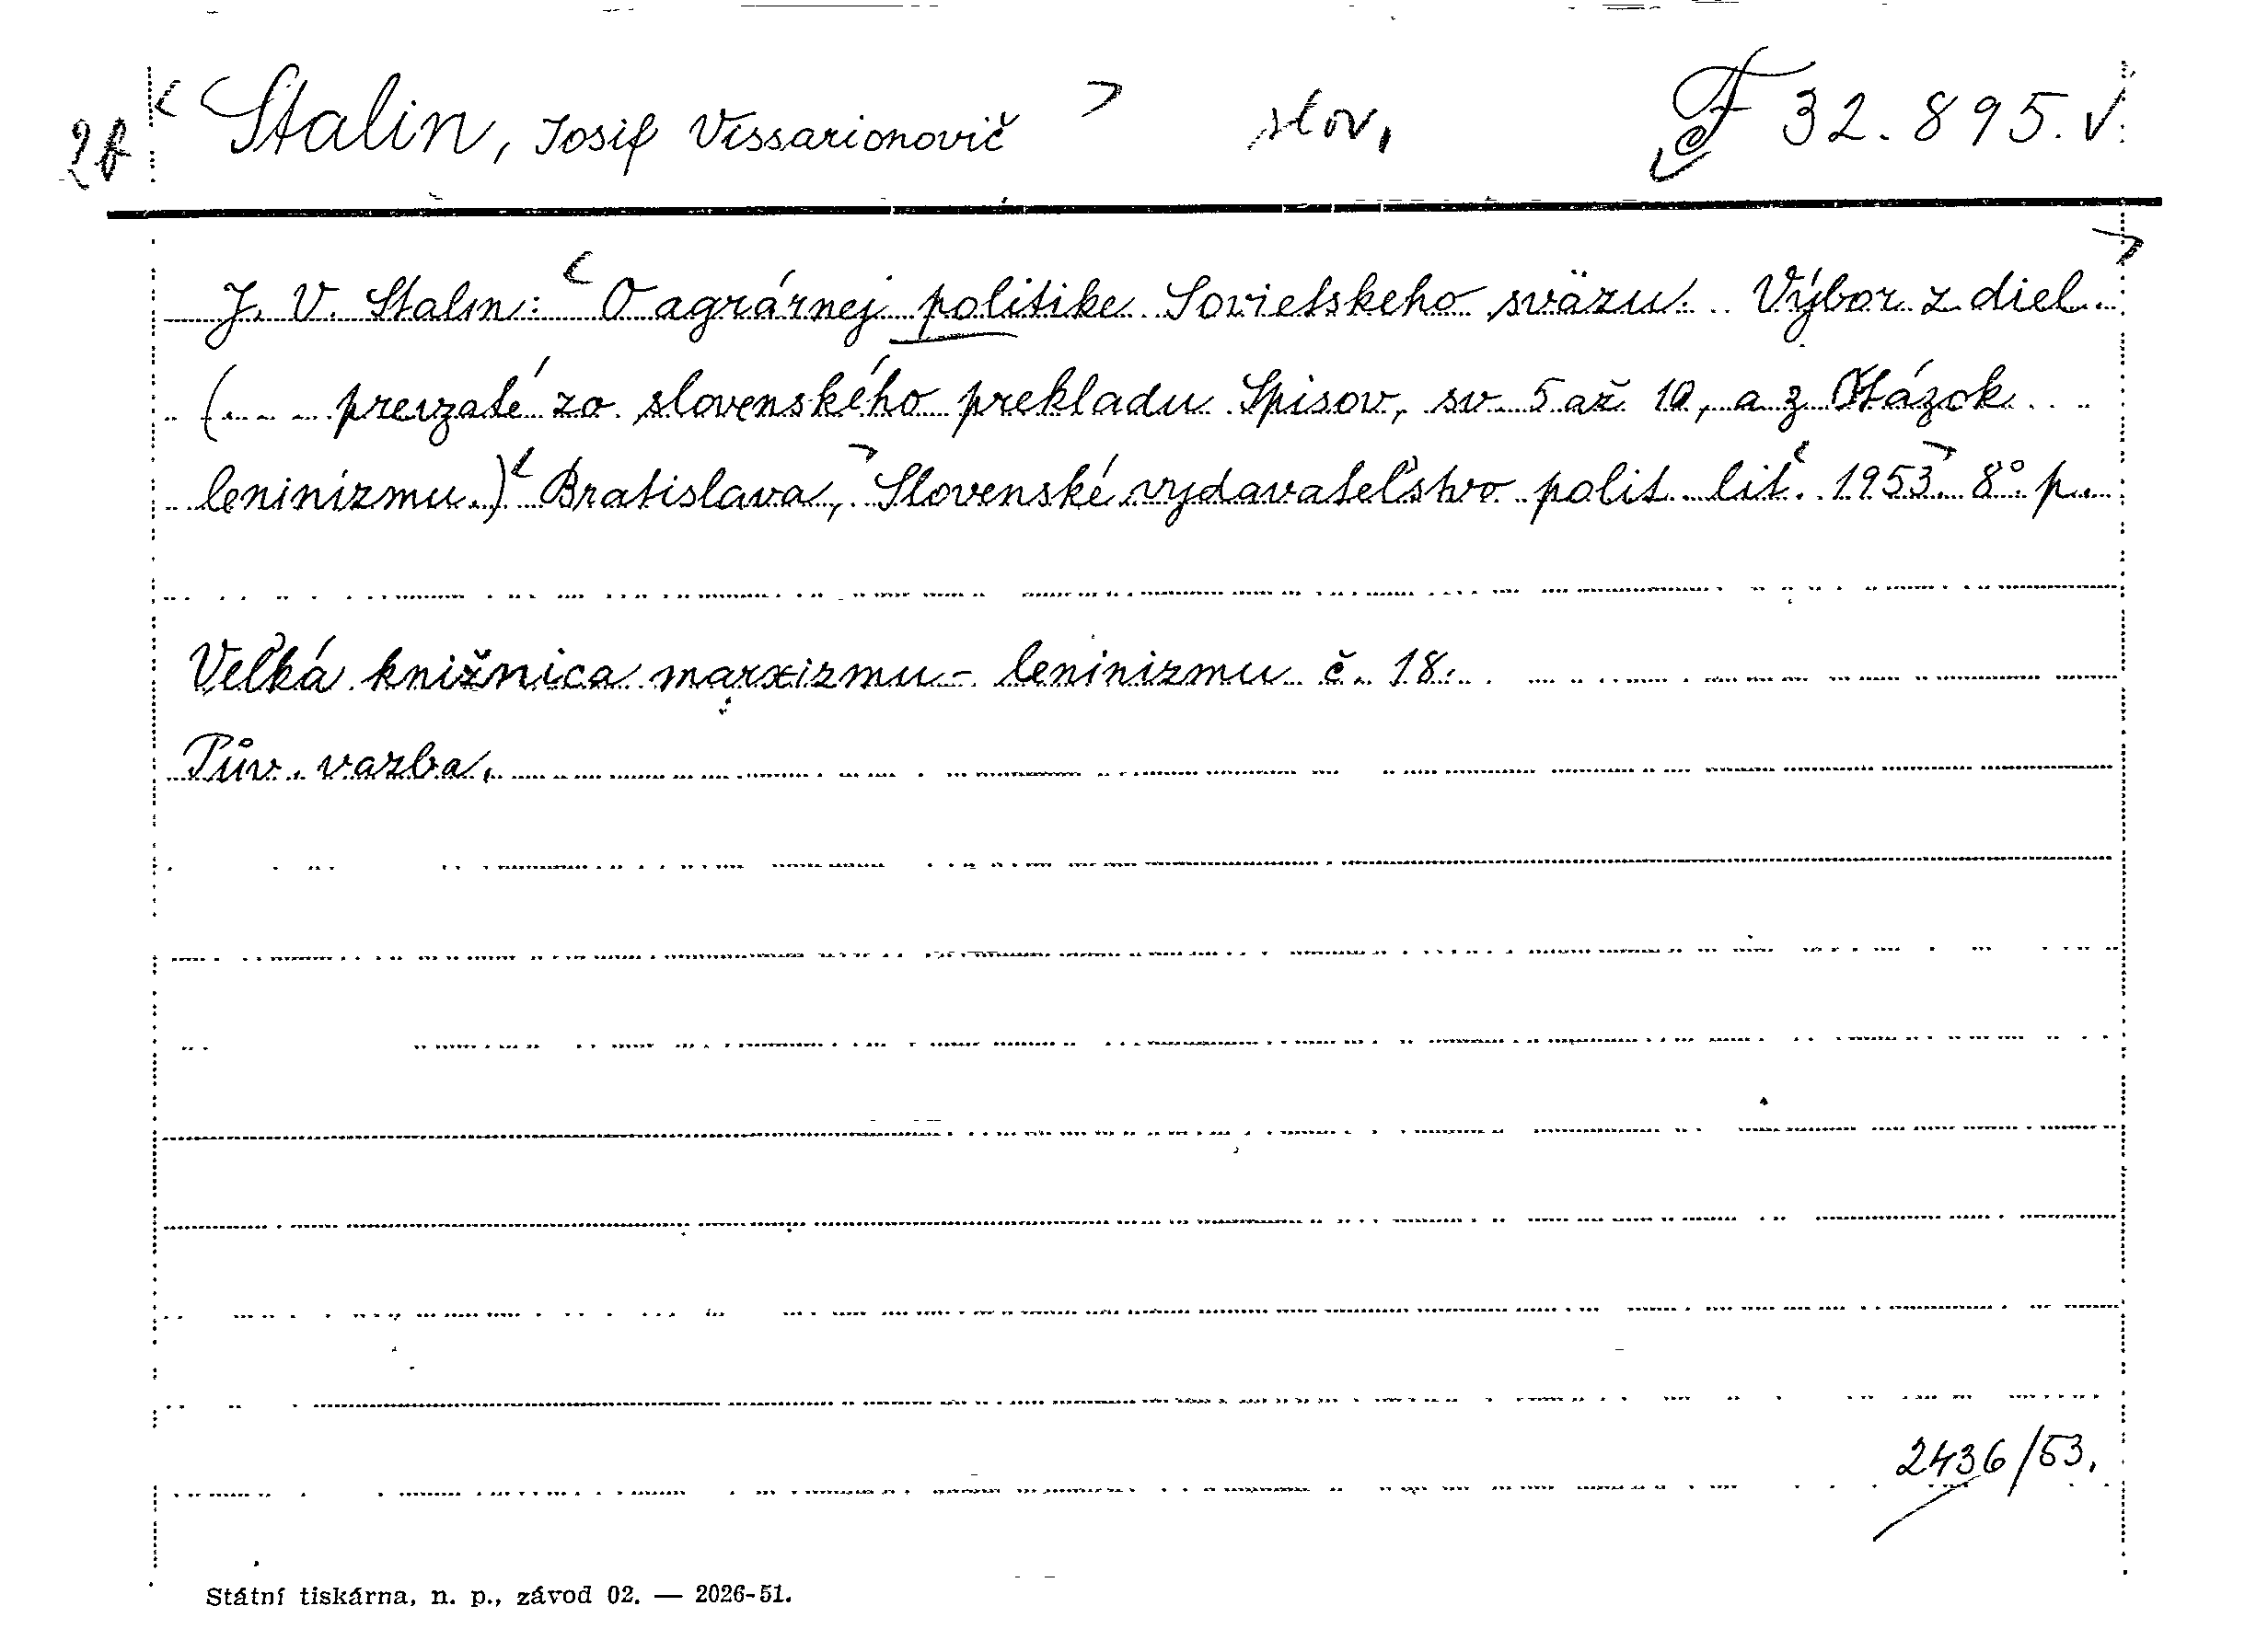 < Stalin, Josif Vissarionovič > slov. F 32.895.V.
J. V. Stalin: < O agrárnej politike Sovietskeho sväzu. Výbor z diel. >
(... prevzaté zo slovenského prekladu Spisov, sv. 5 až 10, a z Otázok
leninizmu.) < Bratislava, > Slovenské vydavateľstvo polit. lit. < 1953 >. 8° p.
Veľká knižnica marxizmu-leninizmu č. 18.
Pův. vazba.
2436/53.
Státní tiskárna, n. p., závod 02. — 2026-51.